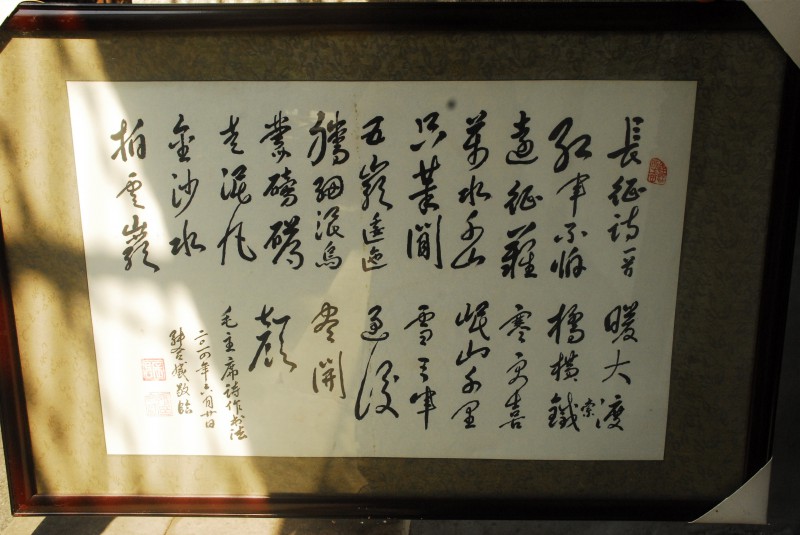 長征詩一首
红軍不怕
遠征難
萬水千山
只等閒
五嶺逶迤
腾细浪烏
蒙磅礴
走泥丸
金沙水
拍雲
暖大渡
橋横鐵索
寒更喜
岷山千里
雪三軍
過後
尽開
顔
毛主席诗作书法
二〇一四年六月廿日
敬临